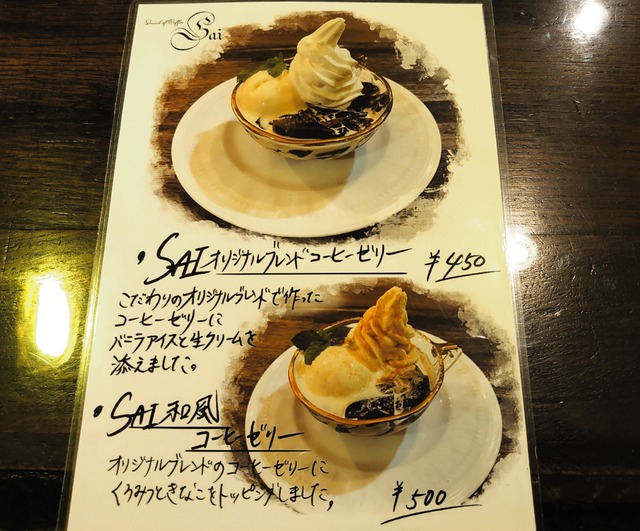 Sai
・SAIオリジナルブレンドコーヒーゼリー ¥450
こだわりのオリジナルブレンドで作った
コーヒーゼリーに
バニラアイスと生クリームを
添えました。
・SAI和風
コーヒーゼリー
オリジナルブレンドのコーヒーゼリーに
くろみつときなこをトッピングしました。
¥500